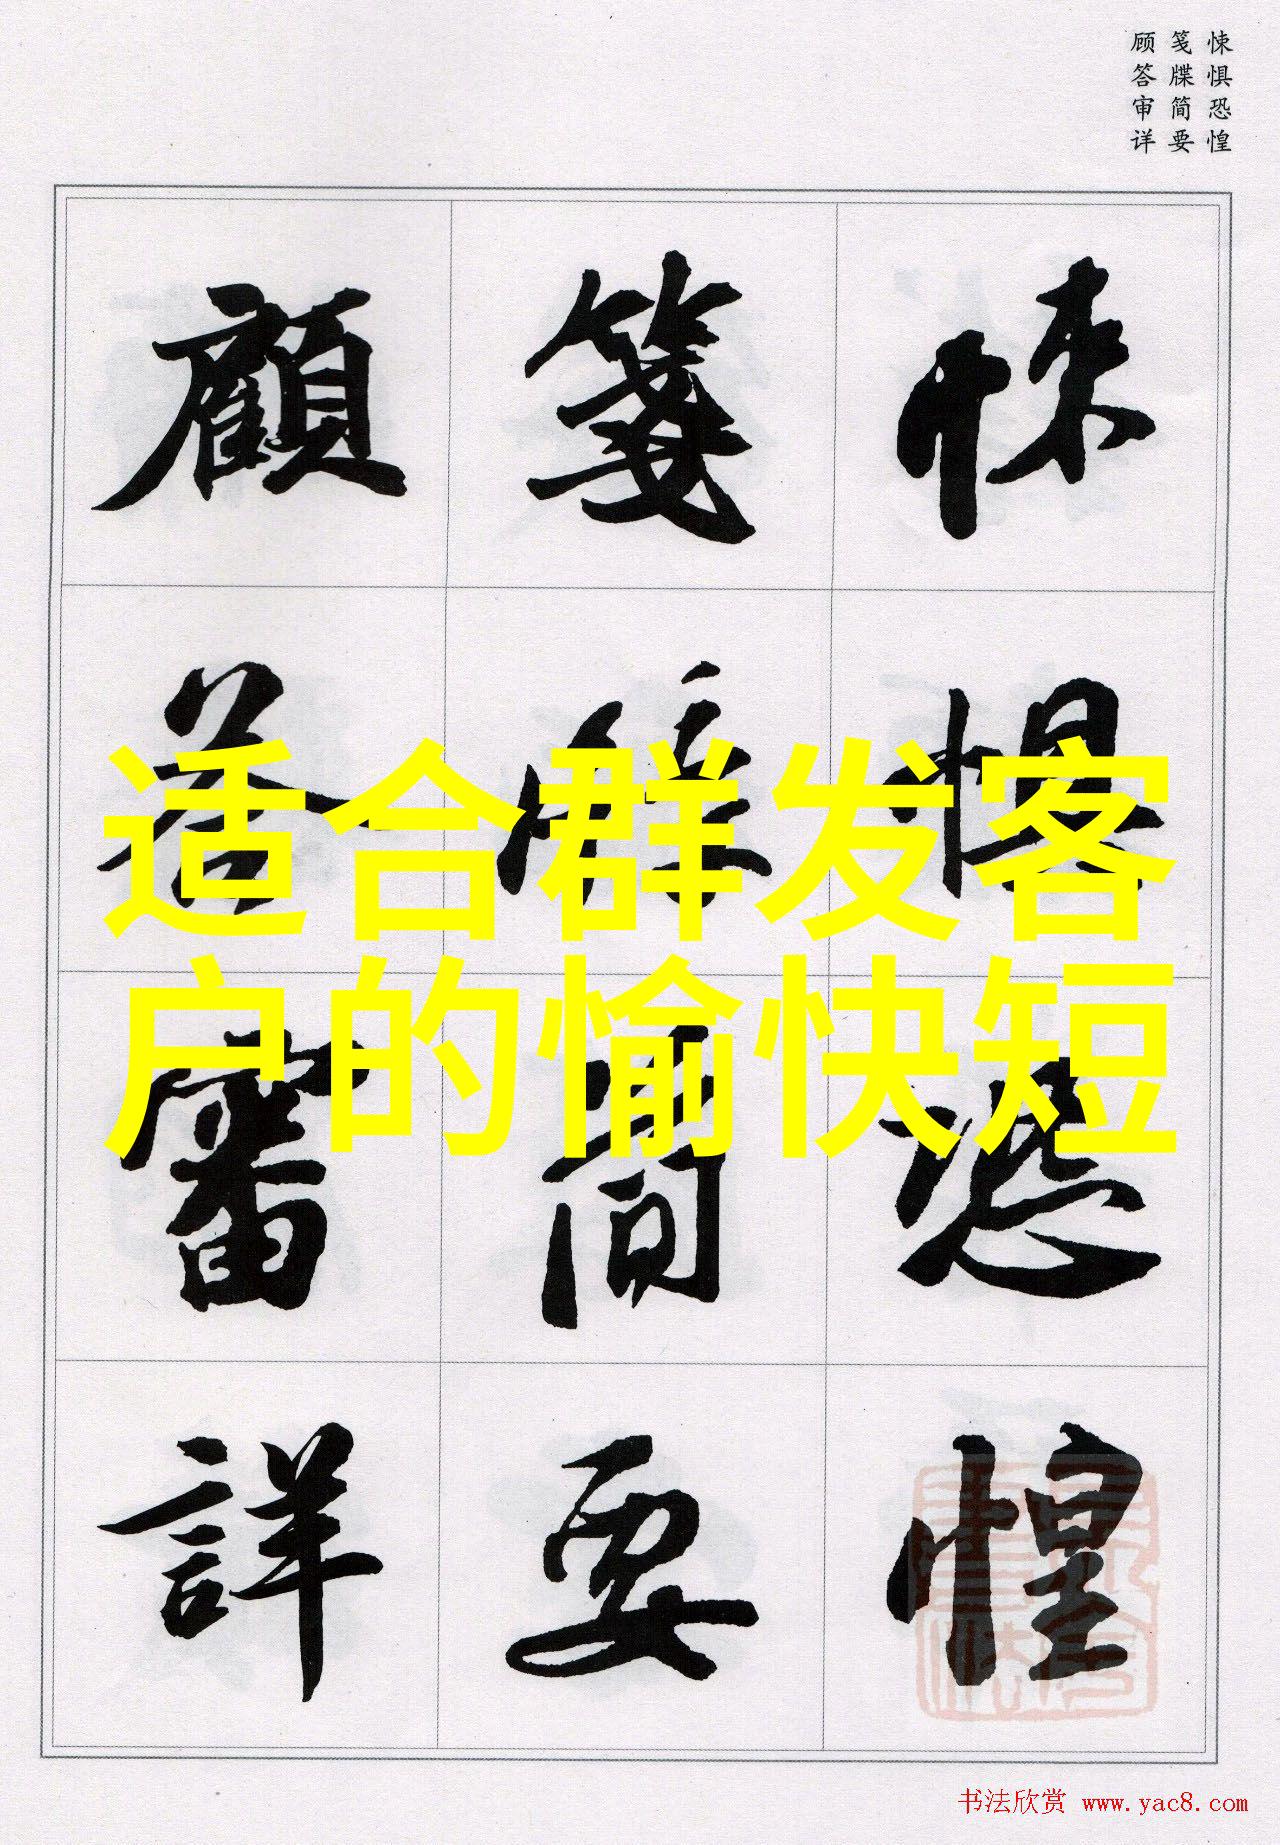 悚惧恐惶
笺牒简要
顾答审详
悚惧恐惶
箋牒簡要
顧答審詳
适合群发客
户的愉快短
书法欣赏 www.yac8.com